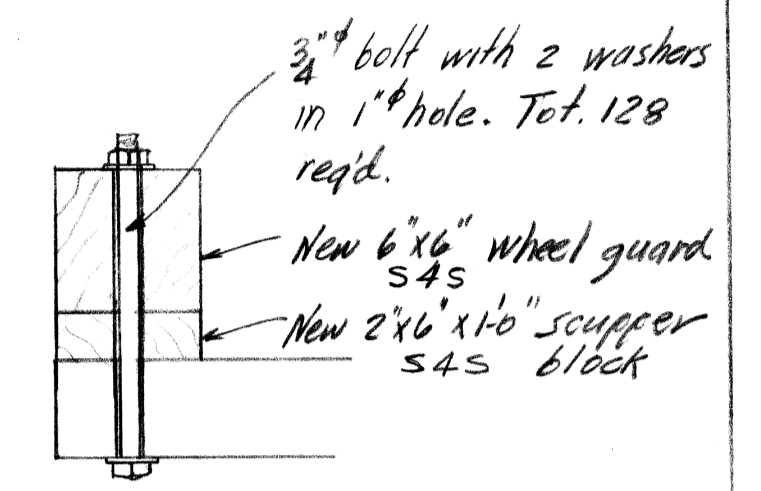 3/4"ϕ bolt with 2 washers
in 1"ϕ hole. Tot. 128
req'd.
New 6"x6" wheel guard
S4S
New 2"x6"x1'-0" scupper
S4S block